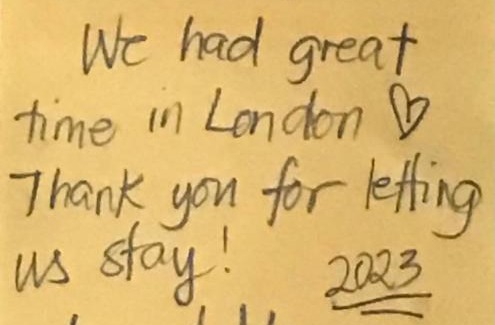 We had great
time in London ♡
Thank you for letting
us stay!
2023